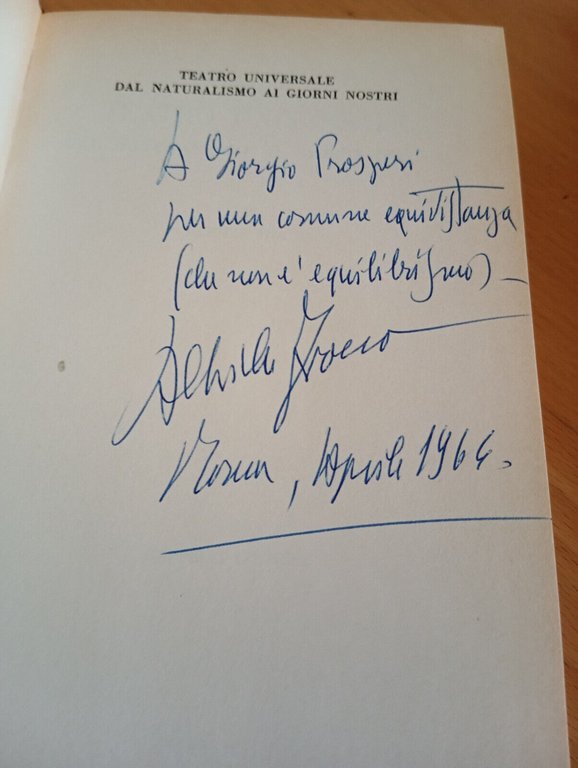 TEATRO UNIVERSALE
DAL NATURALISMO AI GIORNI NOSTRI
A Giorgio Prosperi
per una comune equidistanza
(che non è equilibrismo) –
Achille
Roma, Aprile 1964.